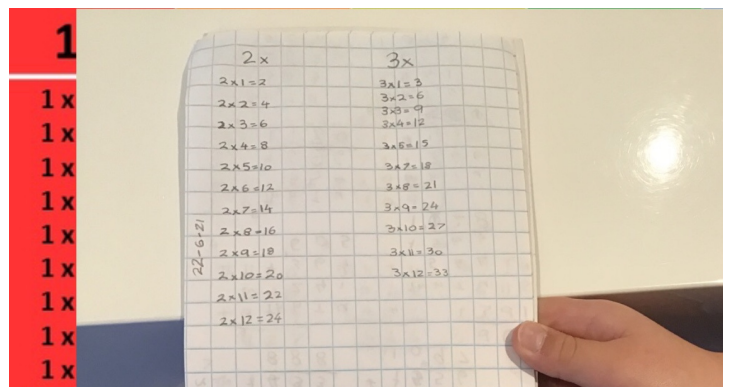 1
1 x
1 x
1 x
1 x
1 x
1 x
1 x
1 x
1 x
2x
2x1=2
2x2=4
2x3=6
2x4=8
2x5=10
2x6=12
2x7=14
2x8=16
2x9=18
2x10=20
2x11=22
2x12=24
3x
3x1=3
3x2=6
3x3=9
3x4=12
3x5=15
3x7=18
3x8=21
3x9=24
3x10=27
3x11=30
3x12=33
22-6-21